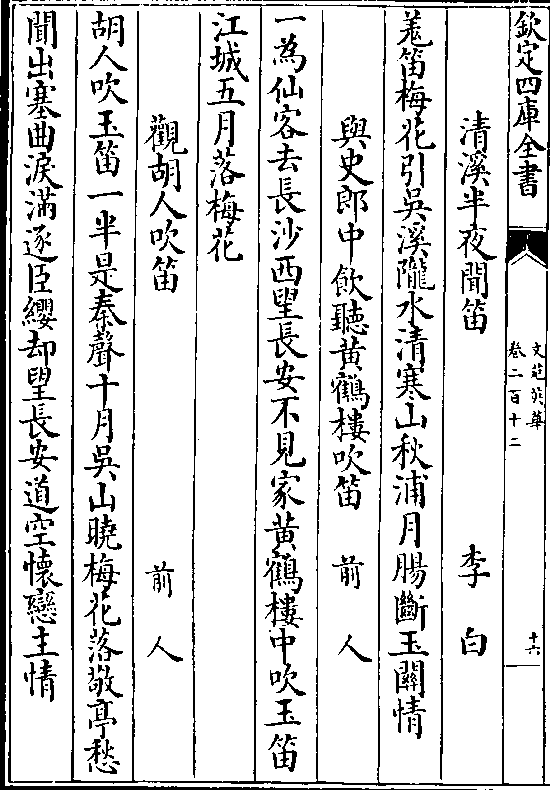 欽定四庫全書
文苑英華
卷二百十二
十六
清溪半夜聞笛 李白
羗笛梅花引吳溪隴水清寒山秋浦月腸斷玉關情
與史郎中飲聽黄鶴樓吹笛 前人
一為仙客去長沙西望長安不見家黄鶴樓中吹玉笛
江城五月落梅花
觀胡人吹笛 前人
胡人吹玉笛一半是秦聲十月吳山曉梅花落敬亭愁
聞出塞曲淚滿逐臣纓却望長安道空懷戀主情